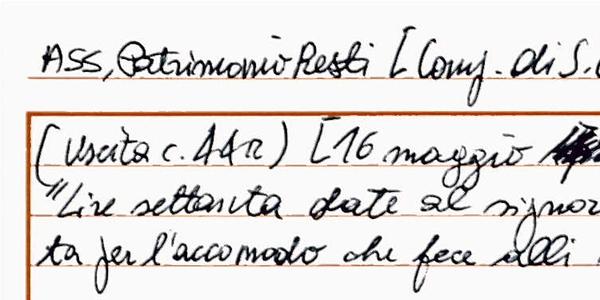 ASS, Patrimonio Resti [Comp. di S.
(Uscita c. 44r) [16 maggio
"Lire settanta date al signor
ta per l'accomodo che fece alli